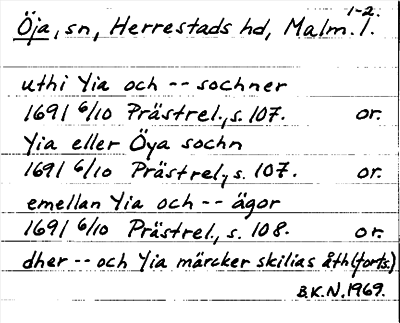 1-2.
Öja, sn, Herrestads hd, Malm. l.
uthi Yia och -- sochner
1691 6/10 Prästrel., s. 107. or.
Yia eller Öya sochn
1691 6/10 Prästrel., s. 107. or.
emellan Yia och -- ägor
1691 6/10 Prästrel., s. 108. or.
dher -- och Yia märcker skilias åth (forts.)
B.K.N. 1969.